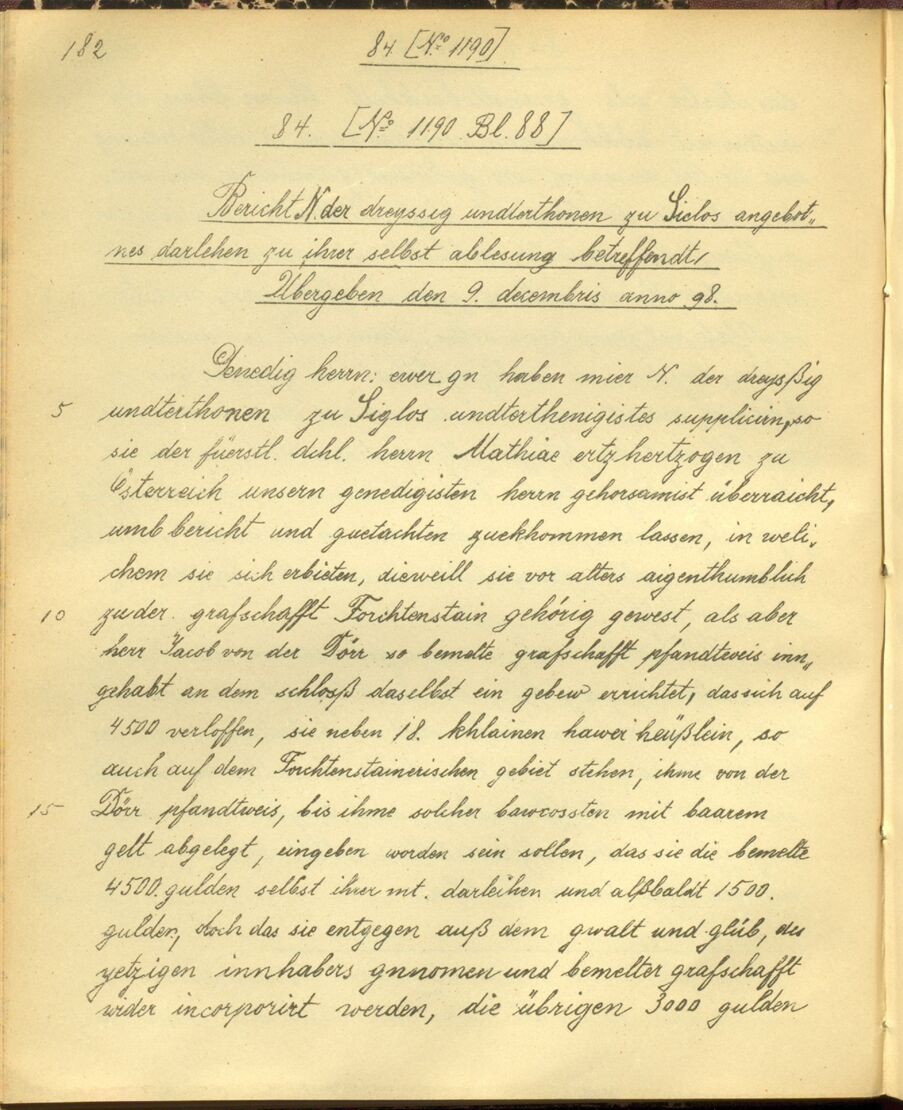 182
84 [No. 1190]
84. [No. 1190 Bl. 88]
Bericht N. der dreyssig undterthonen zu Siclos angebot„
nes darlehen zu ihrer selbst ablesung betreffendt,
Übergeben den 9. decembris anno 98.
Genedig herrn: ewer gn haben mier N. der dreysßig
5 undterthonen zu Siglos undterthenigistes supplicirn, so
sie der füerstl. dchl. herrn Mathiae ertzhertzogen zu
Österreich unsern genedigisten herrn gehorsamist überraicht,
umb bericht und guetachten zuekhommen lassen, in weli„
chem sie sich erbieten, dieweill sie vor alters aigenthumblich
10 zu der grafschafft Forchtenstain gehörig gewest, als aber
herr Jacob von der Dörr so bemelte grafschafft pfandtweis inn„
gehabt an dem schlosß daselbst ein gebew errichtet, das sich auf
4500 verloffen, sie neben 18. khlainen hawer heüßlein, so
auch auf dem Forchtenstainerischen gebiet stehen, ihme von der
15 Dörr pfandtweis, bis ihme solcher bawcossten mit baarem
gelt abgelegt, eingeben worden sein sollen, das sie die bemelte
4500. gulden selbst ihrer mt. darleihen und alßbaldt 1500.
gulden, doch das sie entgegen auß dem gwalt und glüb, des
yetzigen innhabers gnnomen und bemelter grafschafft
wider incorporirt werden, die übrigen 3000 gulden